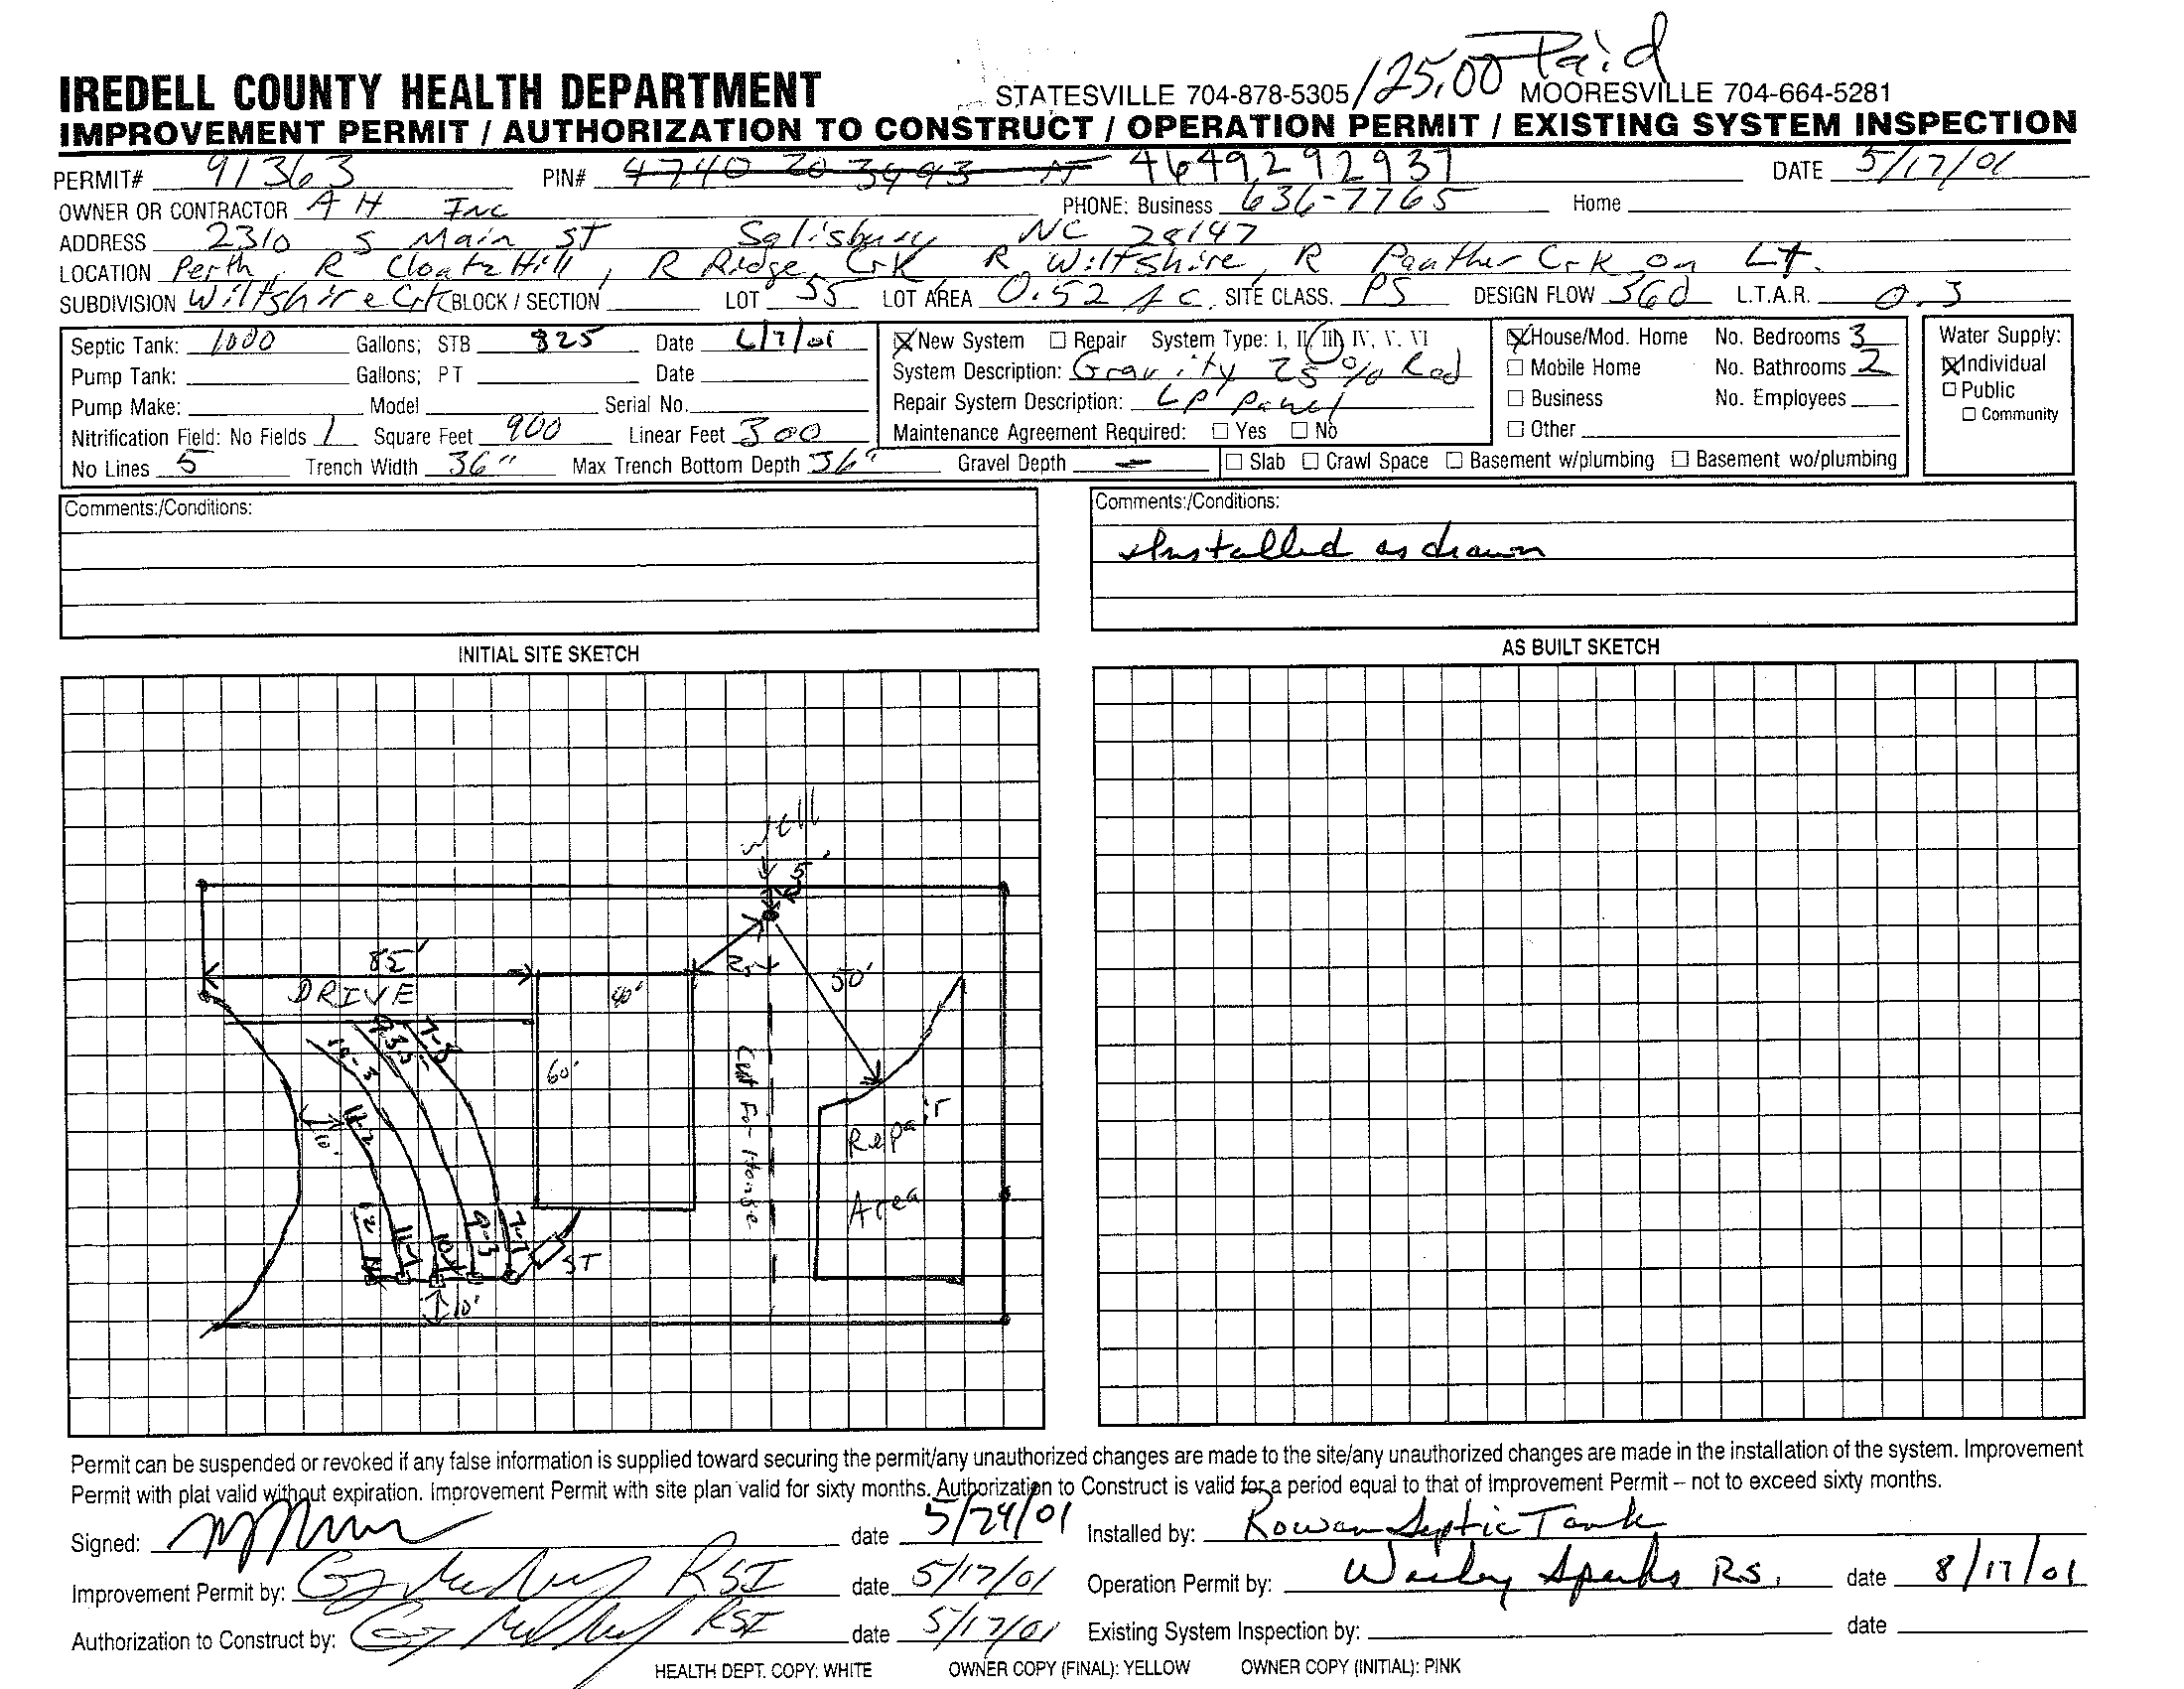 125.00 Paid
IREDELL COUNTY HEALTH DEPARTMENT STATESVILLE 704-878-5305 MOORESVILLE 704-664-5281
IMPROVEMENT PERMIT / AUTHORIZATION TO CONSTRUCT / OPERATION PERMIT / EXISTING SYSTEM INSPECTION
PERMIT# 91363 PIN# 4740 20 3493 4649292937 DATE 5/17/01
OWNER OR CONTRACTOR A H Inc PHONE: Business 636-7765 Home
ADDRESS 2310 S Main ST Salisbury NC 28147
LOCATION Perth, R Cloatz Hill, R Ridge Crk, R Wiltshire, R Panther Crk on Lt.
SUBDIVISION Wiltshire Crk BLOCK / SECTION LOT 55 LOT AREA 0.52 Ac. SITE CLASS. PS DESIGN FLOW 360 L.T.A.R. 0.3
Septic Tank: 1000 Gallons; STB 825 Date 6/7/01 New System Repair System Type: I, II, III, IV, V. VI House/Mod. Home No. Bedrooms 3 Water Supply:
Pump Tank: Gallons; PT Date System Description: Gravity 25% Red Mobile Home No. Bathrooms 2 Individual
Pump Make: Model Serial No. Repair System Description: LP Panel Business No. Employees Public
Community
Nitrification Field: No Fields 1 Square Feet 900 Linear Feet 300 Maintenance Agreement Required: Yes No Other
No Lines 5 Trench Width 36" Max Trench Bottom Depth 36" Gravel Depth - Slab Crawl Space Basement w/plumbing Basement wo/plumbing
Comments:/Conditions: Comments:/Conditions:
Installed as drawn
INITIAL SITE SKETCH AS BUILT SKETCH
Well
5'
85'
DRIVE
40'
25'
50'
7-8
10-3
60'
Cut For House
11-2
10'
Repair
Area
12
11-1
10-1
9-3
7-7
ST
10'
Permit can be suspended or revoked if any false information is supplied toward securing the permit/any unauthorized changes are made to the site/any unauthorized changes are made in the installation of the system. Improvement
Permit with plat valid without expiration. Improvement Permit with site plan valid for sixty months. Authorization to Construct is valid for a period equal to that of Improvement Permit – not to exceed sixty months.
Signed: date 5/24/01 Installed by: Rowan Septic Tank
Improvement Permit by: RSI date 5/17/01 Operation Permit by: Wesley Sparks R.S. date 8/17/01
Authorization to Construct by: RSI date 5/17/01 Existing System Inspection by: date
HEALTH DEPT. COPY: WHITE OWNER COPY (FINAL): YELLOW OWNER COPY (INITIAL): PINK